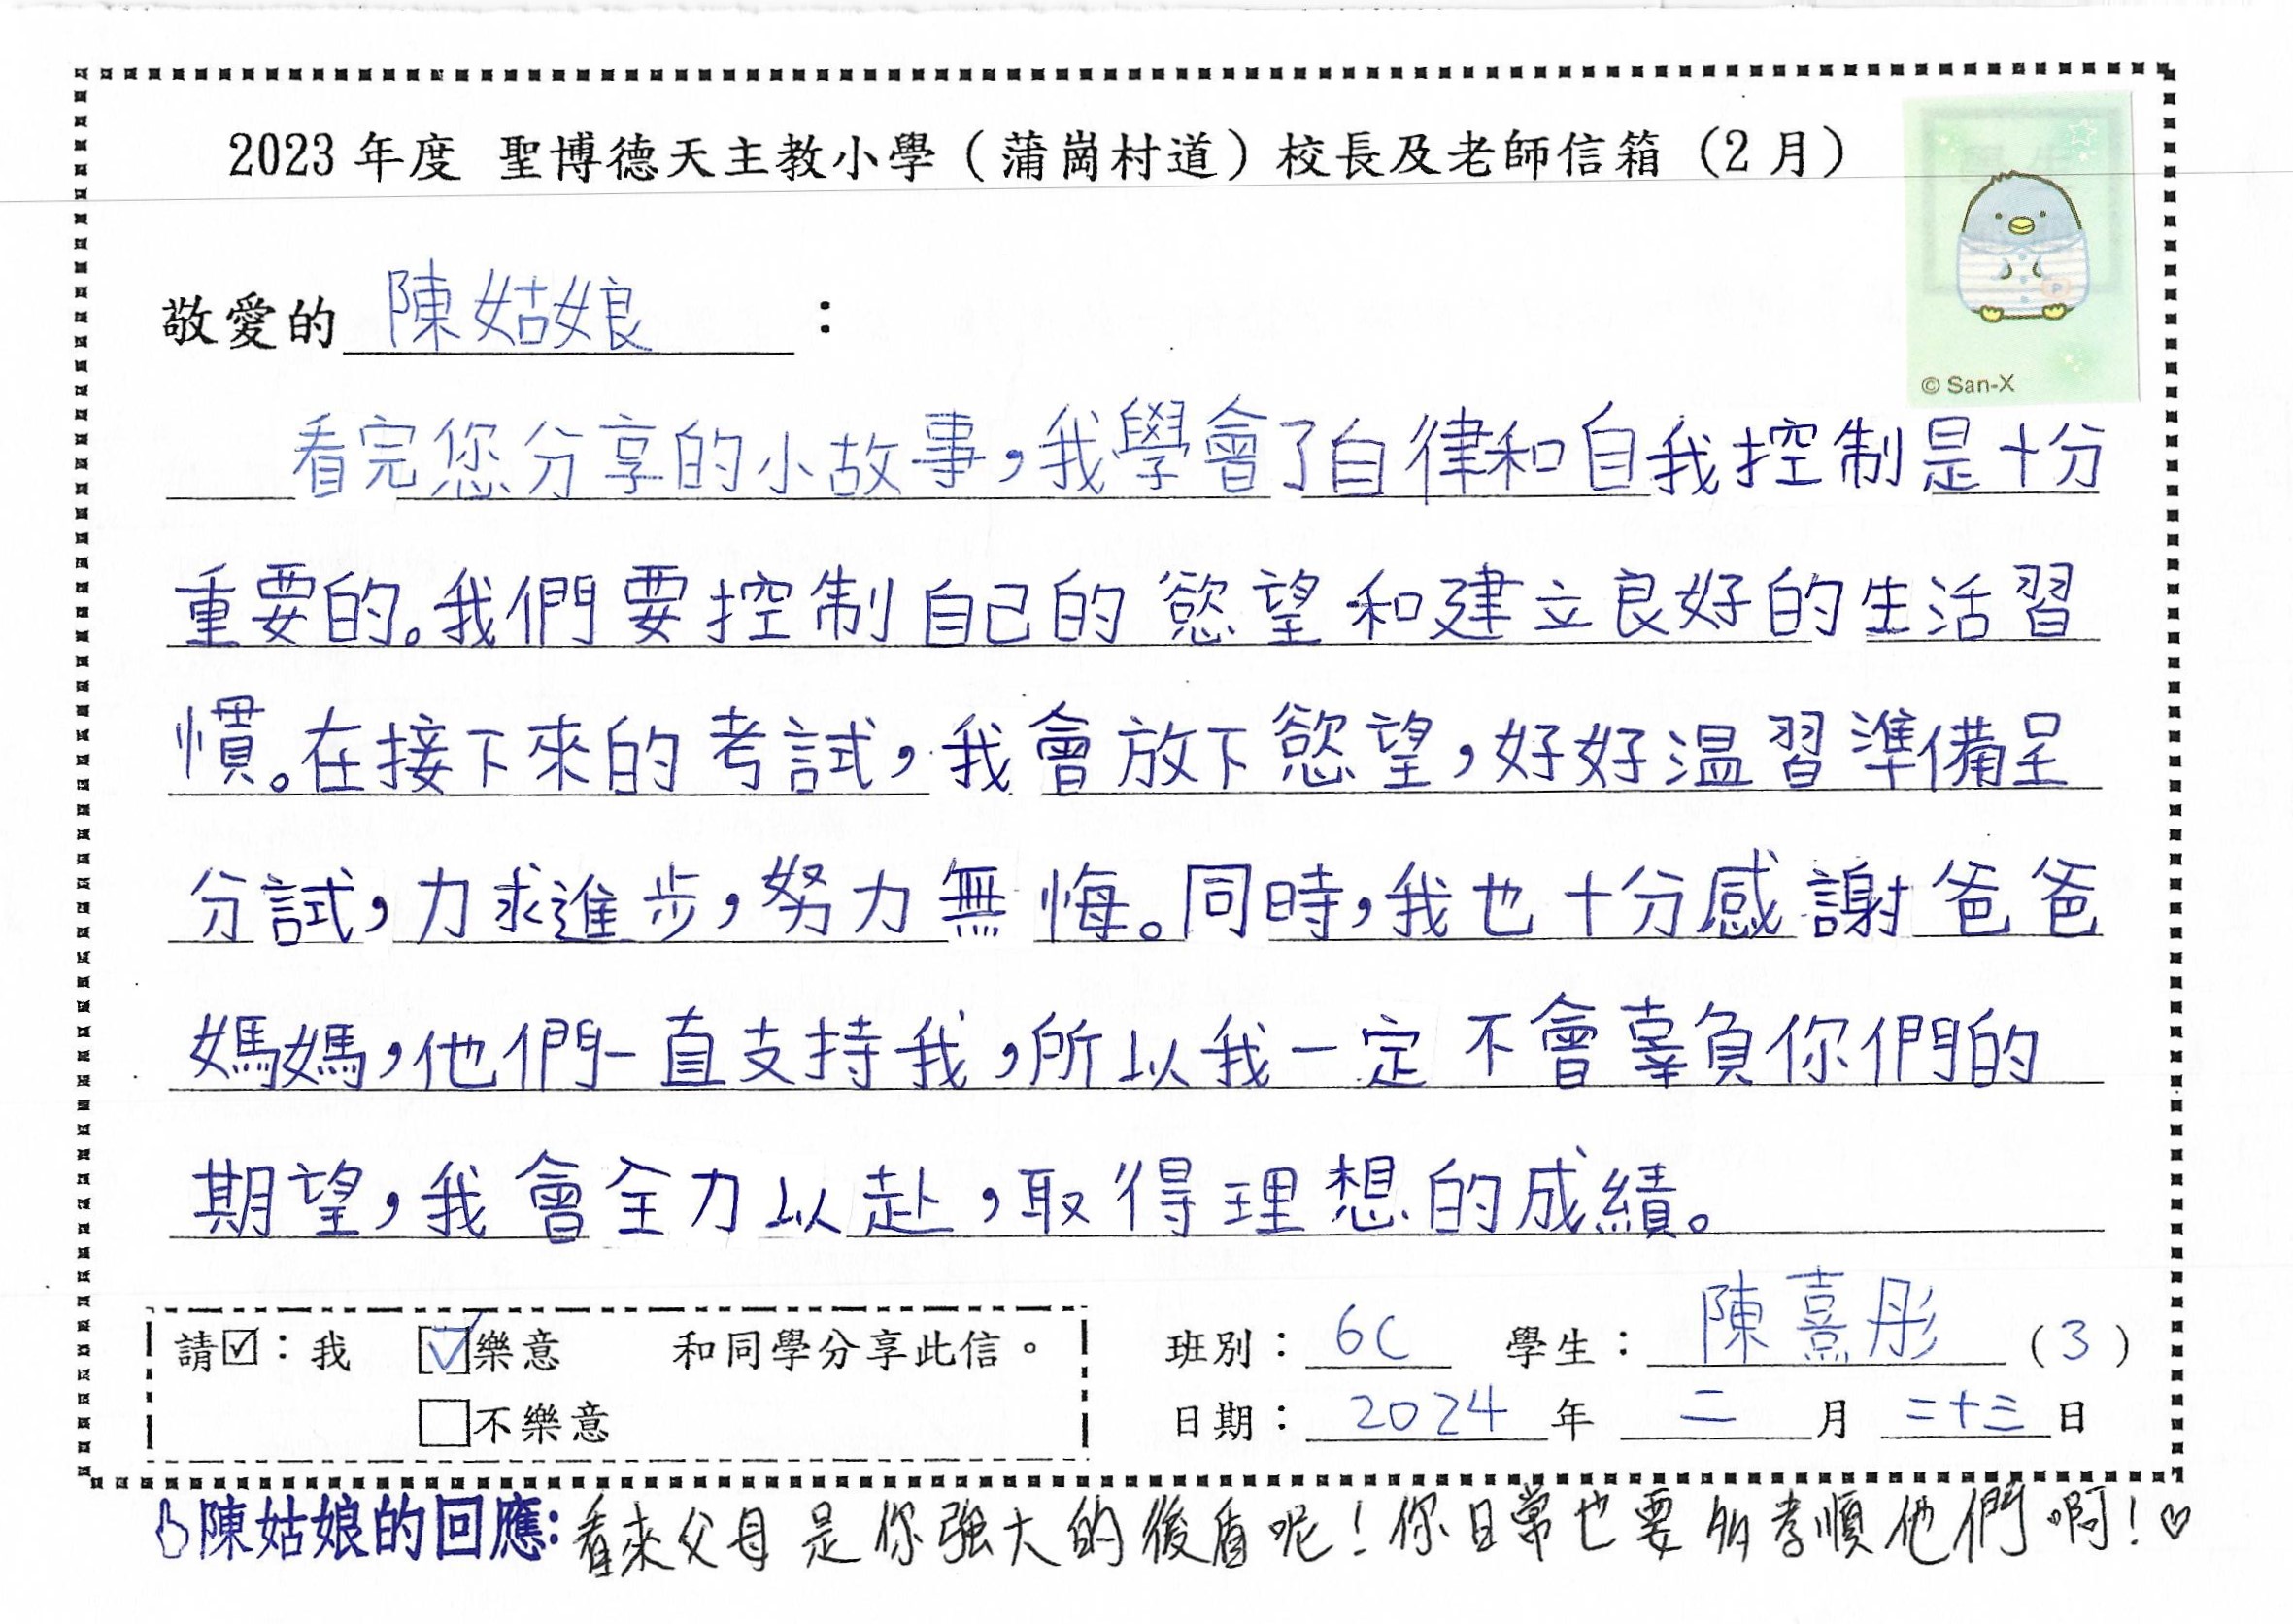 2023 年度 聖博德天主教小學（蒲崗村道）校長及老師信箱（2 月）
© San-X
敬愛的 陳姑娘 ：
看完您分享的小故事，我學會了自律和自我控制是十分
重要的。我們要控制自己的慾望和建立良好的生活習
慣。在接下來的考試，我會放下慾望，好好温習準備呈
分試，力求進步，努力無悔。同時，我也十分感謝爸爸
媽媽，他們一直支持我，所以我一定不會辜負你們的
期望，我會全力以赴，取得理想的成績。
請☑：我 ☑樂意 和同學分享此信。
□不樂意
班別： 6C 學生： 陳熹彤 （3）
日期： 2024 年 二 月 二十三 日
陳姑娘的回應：看來父母是你強大的後盾呢！你日常也要多孝順他們啊！♡